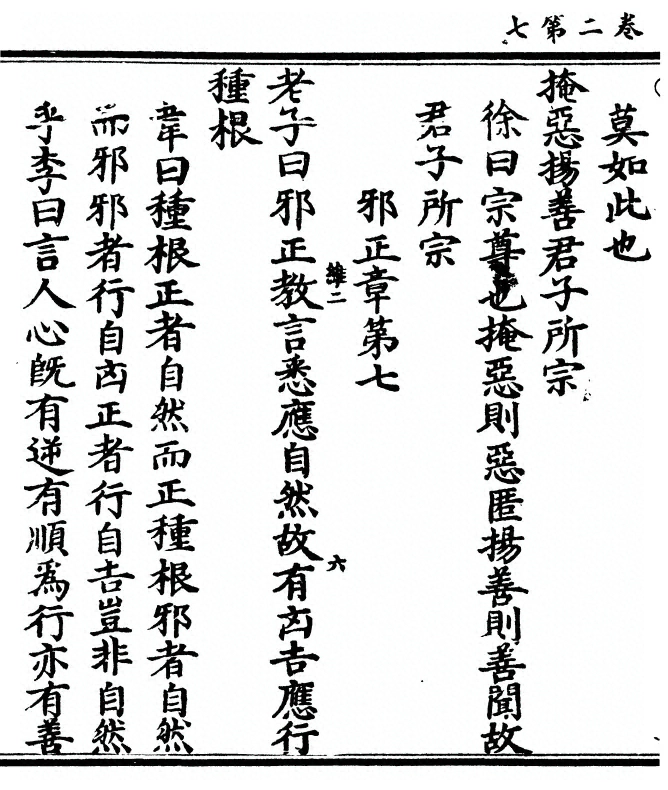 卷二第七
莫如此也
掩惡揚善君子所宗
徐曰宗尊也掩惡則惡匿揚善則善聞故
君子所宗
邪正章第七
維二
六
老子曰邪正教言悉應自然故有㓙吉應行
種根
韋曰種根正者自然而正種根邪者自然
而邪邪者行自㓙正者行自吉豈非自然
乎李曰言人心旣有逆有順爲行亦有善